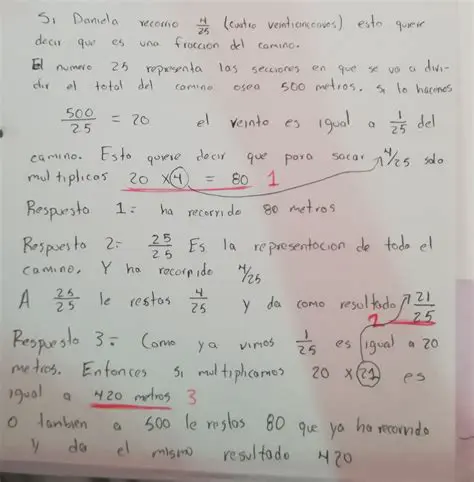 Si Daniela recorrio 4/25 (cuatro veinticincoaves) esto quiere
decir que es una fraccion del camino.
El numero 25 representa las secciones en que se va a divi-
dir el total del camino osea 500 metros. Si lo hacemos
500/25 = 20 el veinte es igual a 1/25 del
camino. Esto quiere decir que para sacar 4/25 solo
multiplicas 20 x 4 = 80 1
Respuesta 1: ha recorrido 80 metros
Respuesta 2: 25/25 Es la representacion de todo el
camino. Y ha recorrido 4/25
A 25/25 le restas 4/25 y da como resultado 21/25 2
Respuesta 3: Como ya vimos 1/25 es igual a 20
metros. Entonces si multiplicamos 20 x 21 es
igual a 420 metros 3
O tambien a 500 le restas 80 que ya ha recorrido
y da el mismo resultado 420